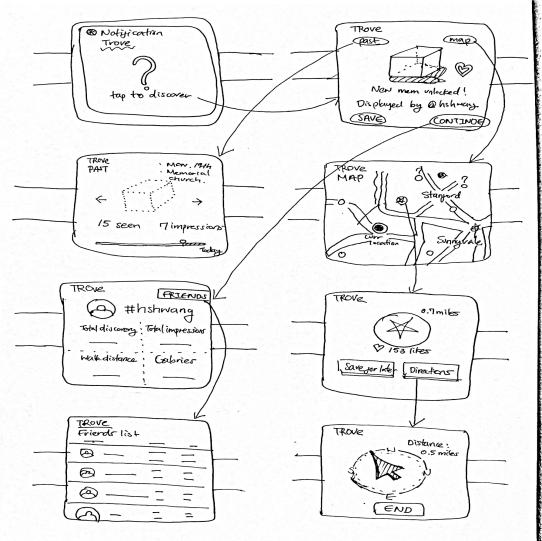 Notification
Trove
?
tap to discover
TROVE
past
map
New mem unlocked!
Displayed by @hshwang
SAVE
CONTINUE
TROVE
PAST
Mon. 19th
Memorial
church.
15 seen
7 impressions
Today
TROVE
MAP
?
?
Stanford
Curr
location
Sunnyvale
TROVE
FRIENDS
#hshwang
Total discovery
Total impressions
Walk distance
Calories
TROVE
0.7 miles
153 likes
Save for later
Directions
TROVE
Friends list
TROVE
Distance:
0.5 miles
N
E
END